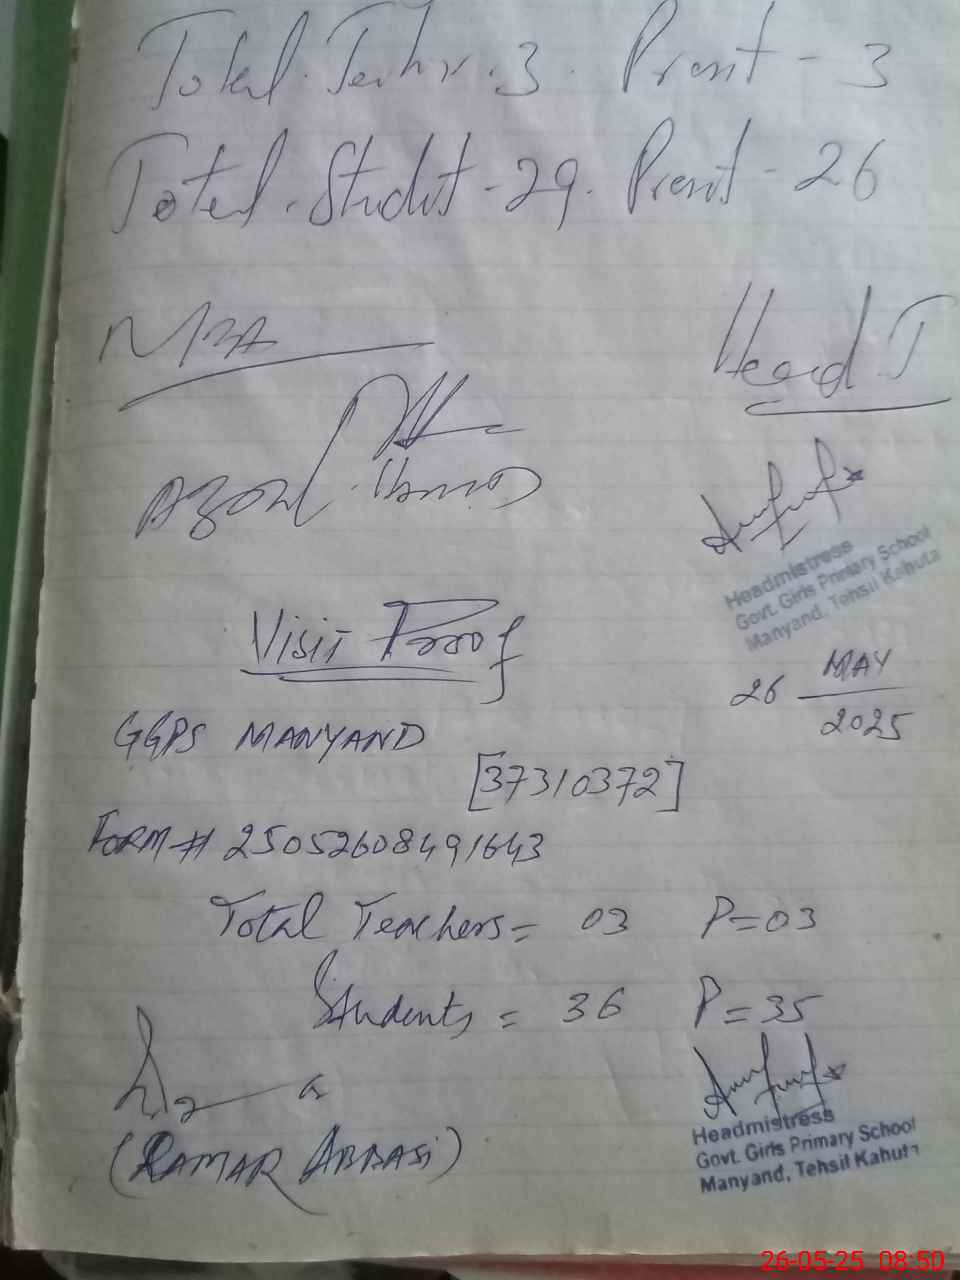 Total. Techr. 3. Presnt - 3
Total. Studnt - 29. Presnt - 26
Head. T
Headmistress
Govt. Girls Primary School
Manyand, Tehsil Kahuta
Visit Proof
26 MAY
2025
GGPS MANYAND
[37310372]
FORM # 25052608491643
Total Teachers = 03 P=03
Students = 36 P=35
(QAMAR ABBASI)
Headmistress
Govt. Girls Primary School
Manyand, Tehsil Kahuta
26-05-25 08:50